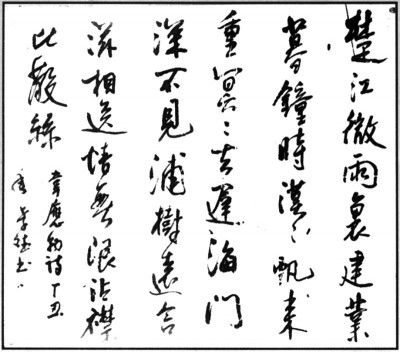 楚江微雨裏建業
暮鐘時漠〻颿来
重冥〻去遲海門
深不見浦樹遠含
滋相送情無限沾襟
比散絲
韋應物詩丁丑
書